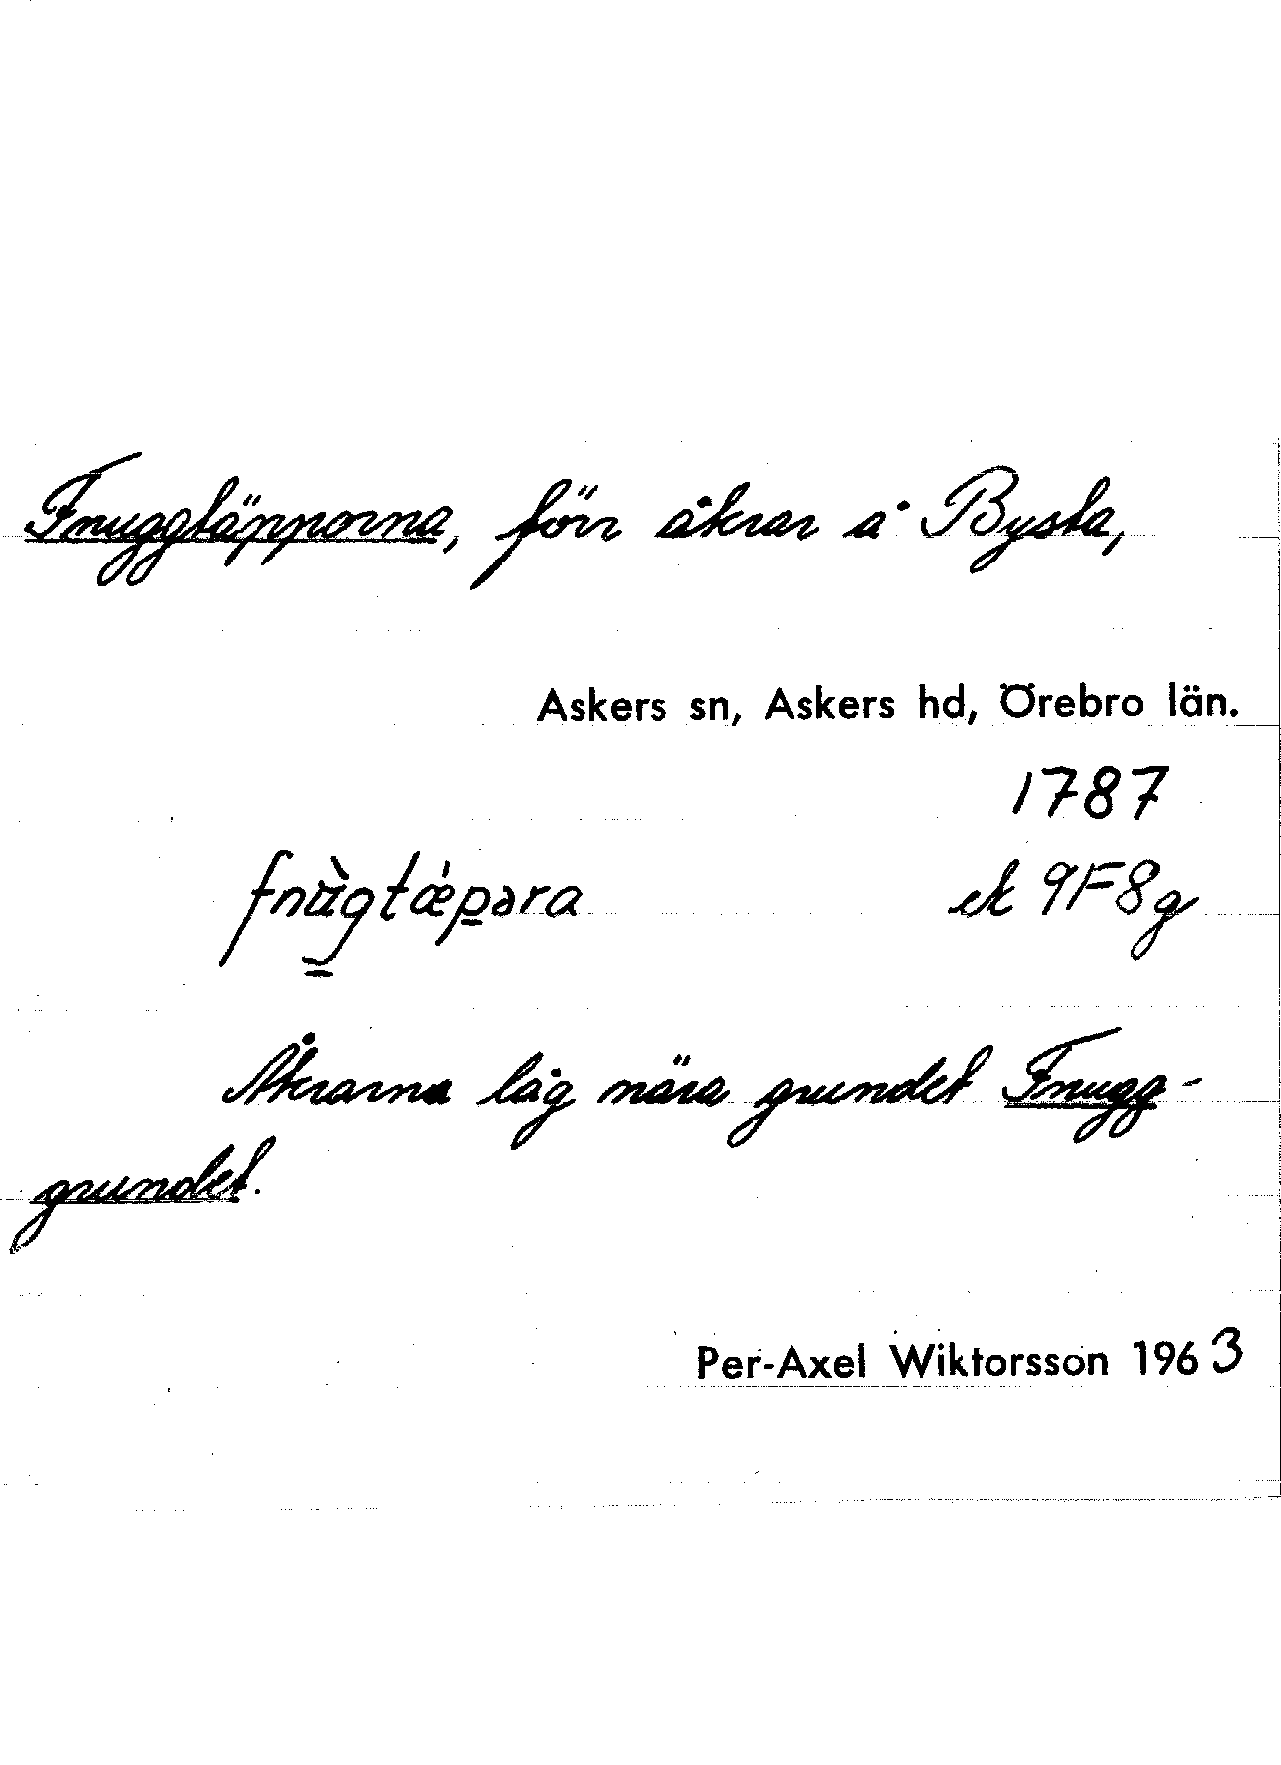 Fnuggtäpporna, förr åkrar å Bysta,
Askers sn, Askers hd, Örebro län.
1787
fnùgtǽpəra ek 9F8g
Åkrarna låg nära grundet Fnugg-
grundet.
Per-Axel Wiktorsson 1963